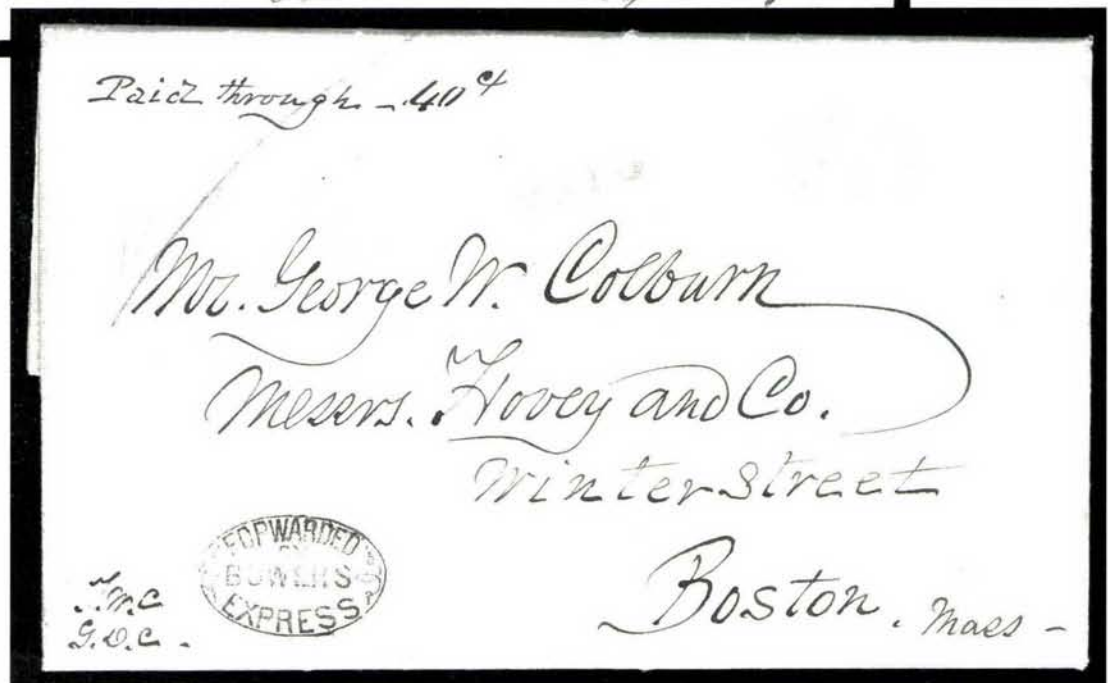 Paid through - 40 ct
Mr. George W. Colburn
Messrs. Hovey and Co.
Winter Street
Boston, Mass -
FORWARDED
BY
BOWERS
EXPRESS